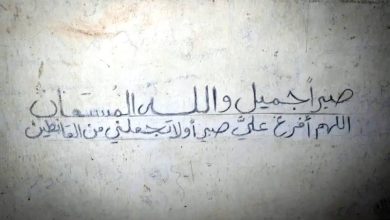 صبراً جميل والله المستعان
اللهم أفرغ عليَّ صبراً ولا تجعلني من القانطين